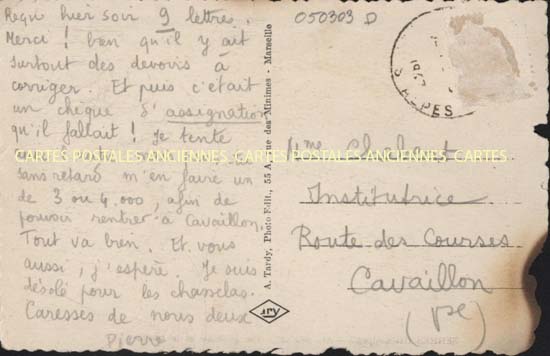 Reçu hier soir 9 lettres.
Merci ! bien qu'il y ait
surtout des devoirs à
corriger. Et puis c'était
un chèque d'assignation
qu'il fallait ! Je tente
CARTES POSTALES ANCIENNES. CARTES POSTALES ANCIENNES. CARTES
sans retard m'en faire un
de 3 ou 4.000, afin de
pouvoir rentrer à Cavaillon.
Tout va bien. Et vous
aussi, j'espère. Je suis
désolé pour les chasselas.
Caresses de nous deux
Pierre
A. Tardy, Photo-Edit., 55 A, rue des Minimes - Marseille
050303 D
ALPES
Mme
Institutrice
Route des Courses
Cavaillon
(Vse)